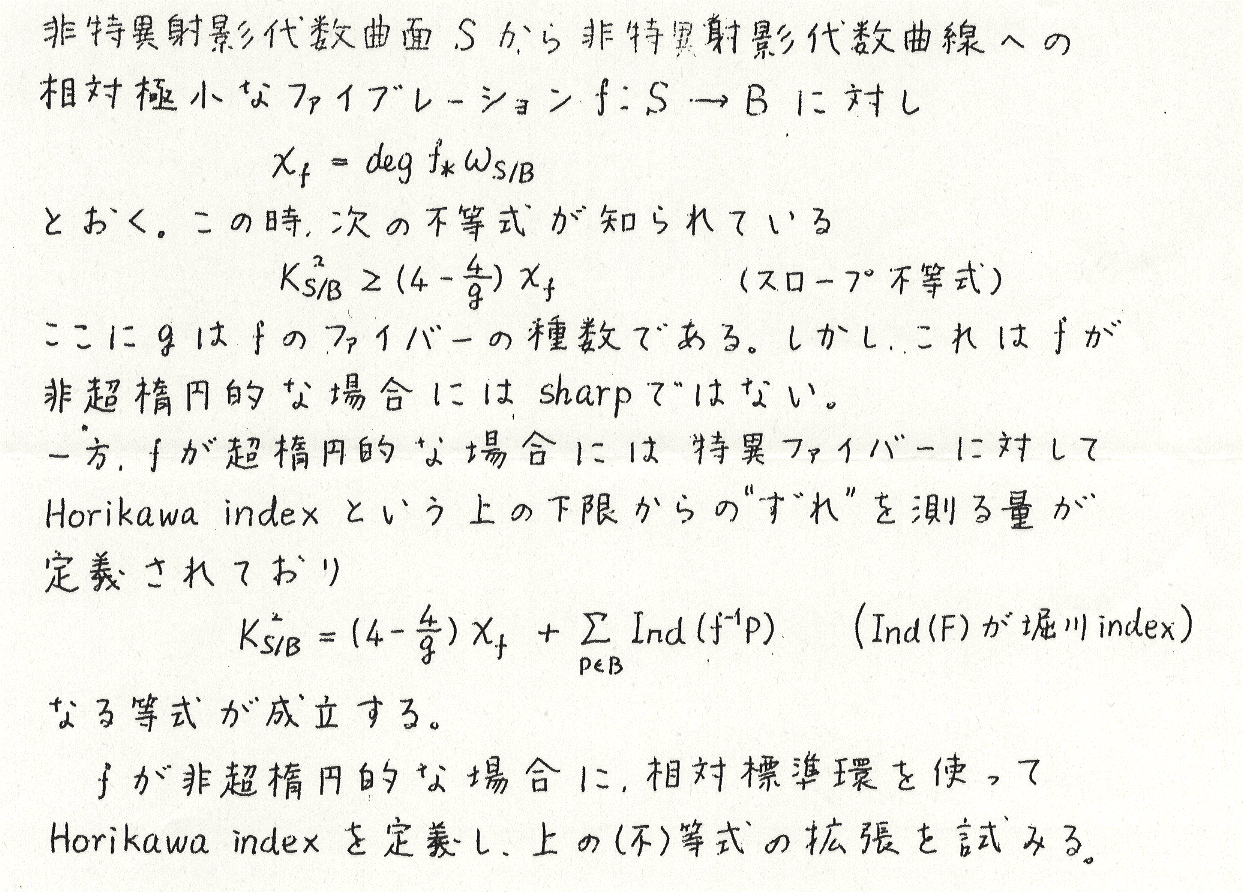 非特異射影代数曲面 S から非特異射影代数曲線への
相対極小なファイブレーション f: S → B に対し
χ_f = deg f_* ω_{S/B}
とおく。この時, 次の不等式が知られている
K_{S/B}^2 ≥ (4 - 4/g) χ_f (スロープ不等式)
ここに g は f のファイバーの種数である。しかし, これは f が
非超楕円的な場合には sharp ではない。
一方, f が超楕円的な場合には特異ファイバーに対して
Horikawa index という上の下限からの"ずれ"を測る量が
定義されており
K_{S/B}^2 = (4 - 4/g) χ_f + Σ_{P∈B} Ind (f^{-1}P) (Ind(F) が堀川 index)
なる等式が成立する。
f が非超楕円的な場合に, 相対標準環を使って
Horikawa index を定義し, 上の(不)等式の拡張を試みる。